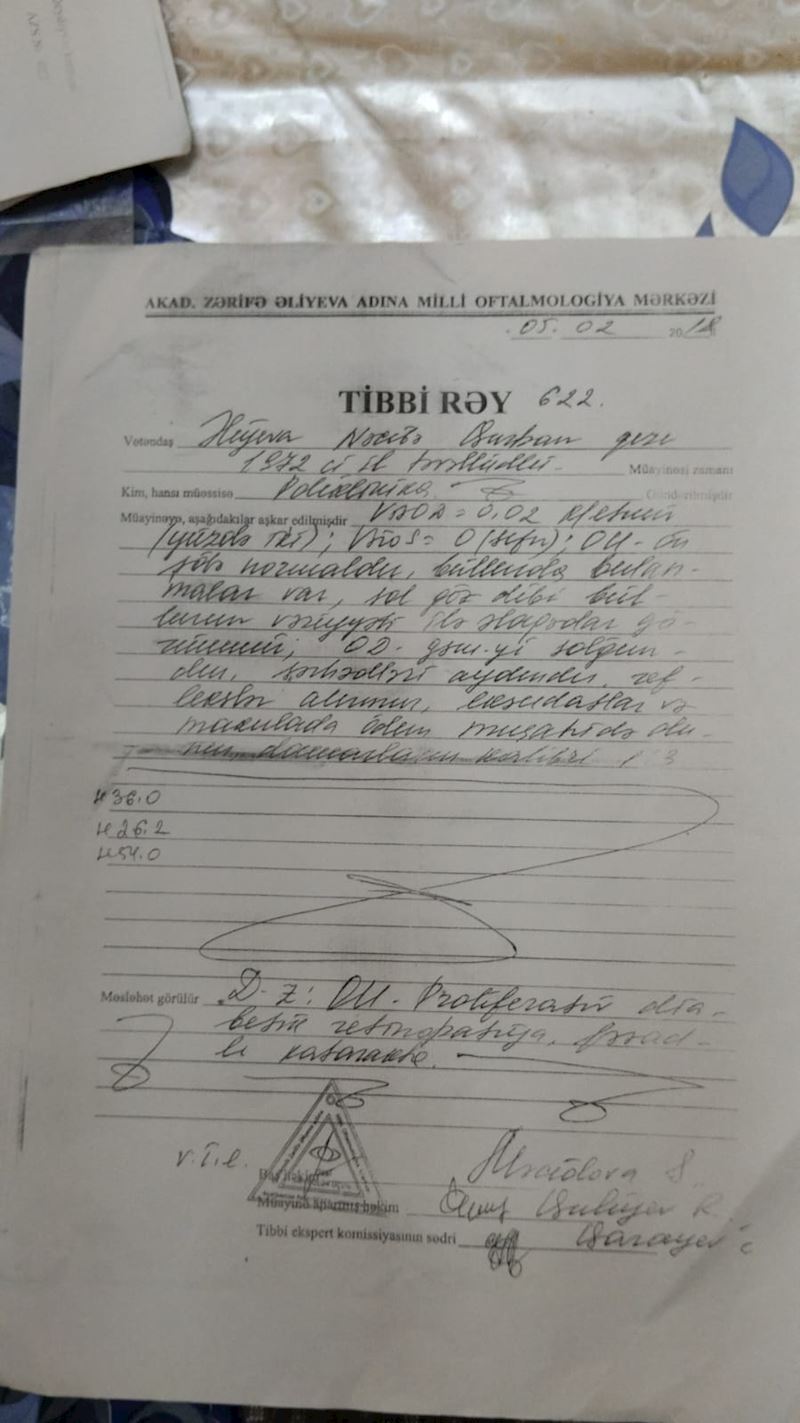 AKAD. ZƏRİFƏ ƏLİYEVA ADINA MİLLİ OFTALMOLOGİYA MƏRKƏZİ
05. 02 2018
TİBBİ RƏY 622.
Vətəndaş Nəcibə Qurban qızı
1972 ci il təvəllüdlü Müayinəsi zamanı
Kim, hansı müəssisə Poliklinika Göndərilmişdir
Müayinəyə, aşağıdakılar aşkar edilmişdir VisOD = 0,02
(yüzdə iki); VisOS = 0 (sıfır); OU-ön
şöbə normaldır, büllurda bulan-
malar var, sol göz dibi bül-
lurun vəziyyəti ilə əlaqədar gö-
rünmür; OD- gsm-yi solğun-
dur, sərhədləri aydındır, ref-
lekslər alınmır, eksudatlar və
makulada ödem müşahidə olu-
nur damarların kalibri 1 3
H36.0
H26.2
H54.0
Məsləhət görülür D-z: OU- Proliferativ dia-
betik retinopatiya, fəsad-
lı katarakta.
v.i.e.
Baş həkim
Müayinə aparmış həkim Quliyev R.
Tibbi ekspert komissiyasının sədri Qarayev